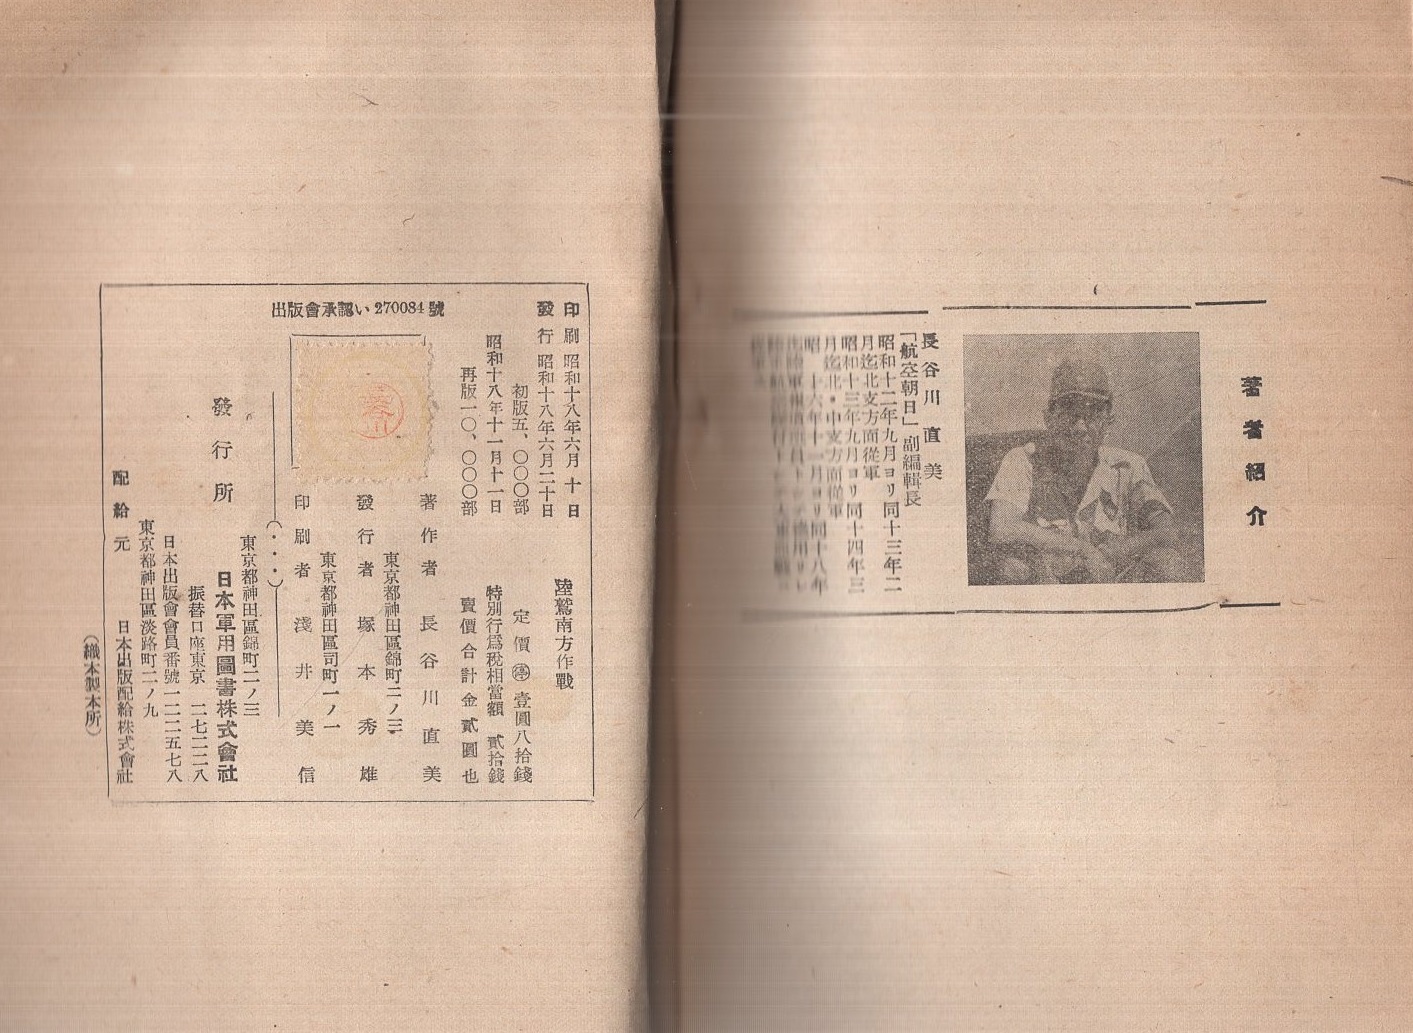 著者紹介
長谷川直美
「航空朝日」副編輯長
昭和十二年九月ヨリ同十三年二
月迄北支方面從軍
昭和十三年九月ヨリ同十四年三
月迄北・中支方面從軍
昭 十六年十一月ヨリ同十八年
出版會承認い270084號
印刷 昭和十八年六月十日
發行 昭和十八年六月二十日
初版五、〇〇〇部
昭和十八年十一月十一日
再版一〇、〇〇〇部
陸鷲南方作戰
定價 停 壹圓八拾錢
特別行爲稅相當額 貳拾錢
賣價合計金貳圓也
著作者 長谷川直美
東京都神田區錦町二ノ三
發行者 塚本秀雄
東京都神田區司町一ノ一
印刷者 淺井美信
東京都神田區錦町二ノ三
發行所 日本軍用圖書株式會社
振替口座東京 二七二二八
日本出版會會員番號一二二五七八
東京都神田區淡路町二ノ九
配給元 日本出版配給株式會社
(織本製本所)